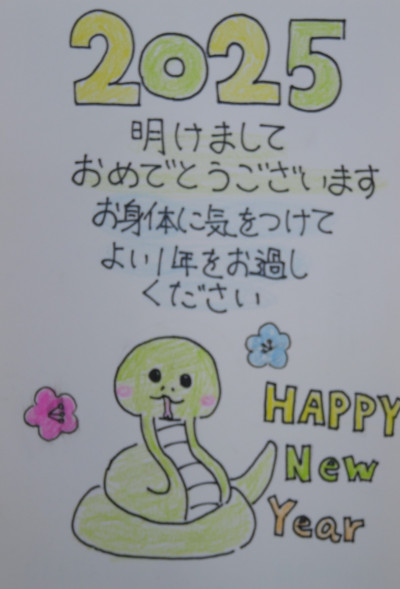 2025
明けまして
おめでとうございます
お身体に気をつけて
よい1年をお過し
ください
HAPPY
New
Year